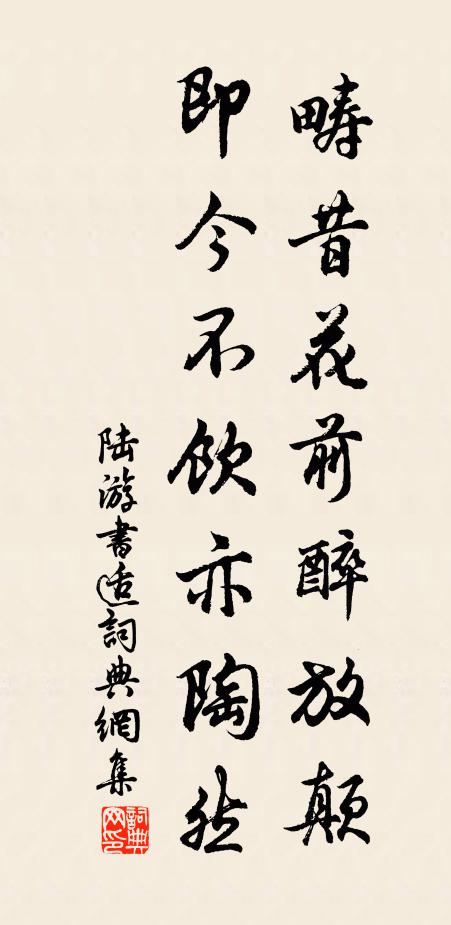 疇昔花前醉放顛
即今不飲亦陶然
陸游書適詞典網集
詞典网印